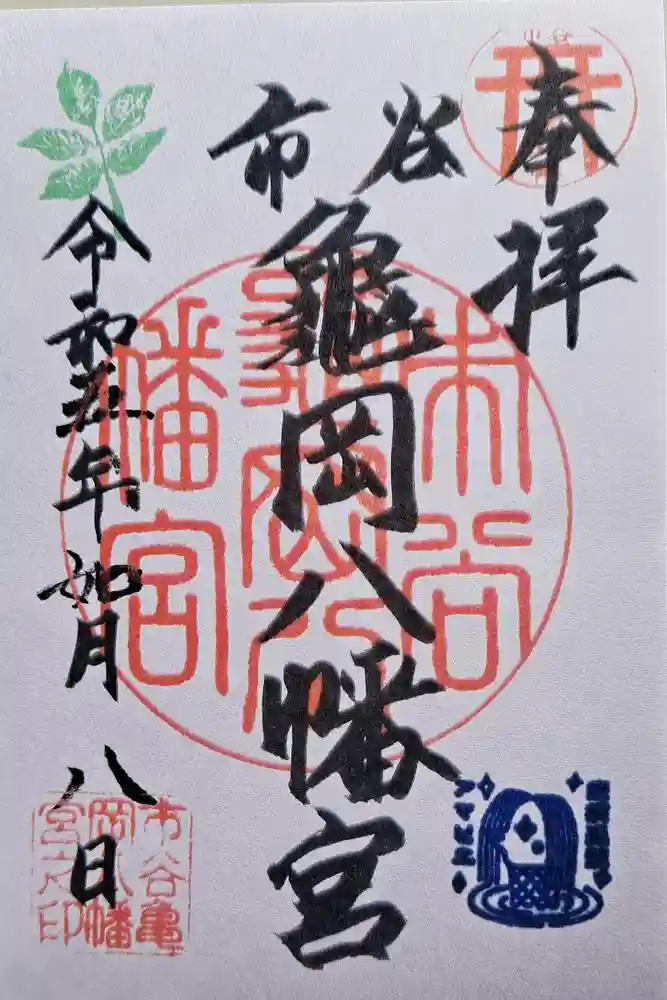 奉拝
市谷
亀岡八幡宮
令和五年如月八日
市谷
亀岡八
幡宮
市谷亀
岡八幡
宮之印
アマビエ